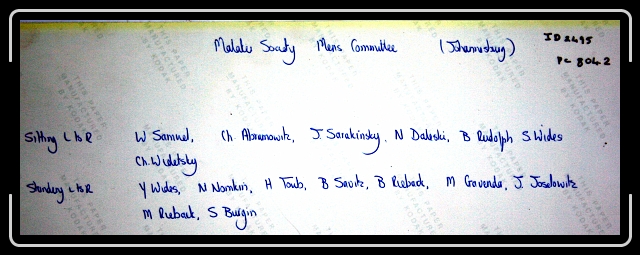 Malatu Society Mens Committee (Johannesburg)
ID 2495
PC 8042
Sitting L to R W Samuel, Ch. Abramowitz, J. Sarakinsky. N Daleski, B Rudolph S Wides
Ch. Widetsky
Standing L to R Y Wides, N Nomkin, H Taub, B Savitz, B Rieback, M Govenda, J. Joselowitz
M Rieback, S Burgin
THIS PAPER
MANUFACTURED
BY KODAK